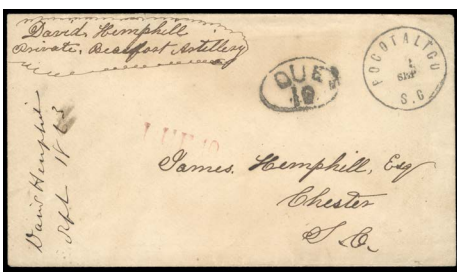 David Hemphill
Private, Beaufort Artillery
DUE
10
POCOTALIGO
1
SEP
S.C.
David Hemphill
Sept 1863
DUE 10
James. Hemphill, Esq
Chester
S. C.